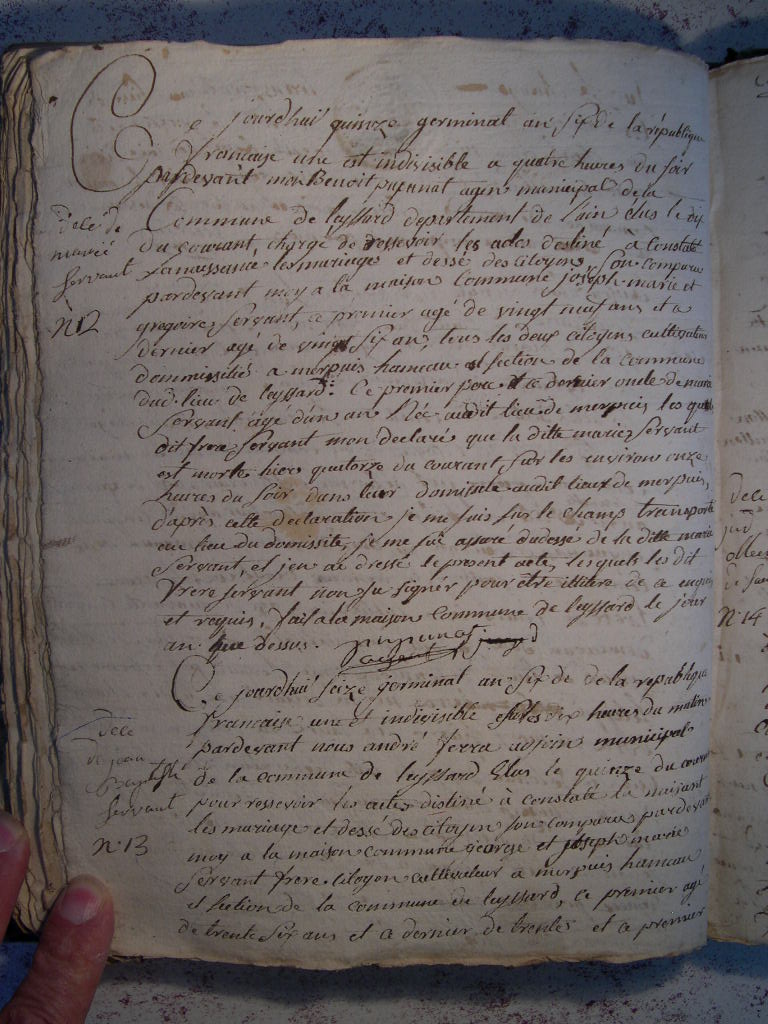 Ce jourdhui quinze germinal an six de la république
francaise une est indivisible a quatre heures du soir
pardevant moi Benoit pupunat agent municipal de la
Commune de leyssard departement de l'ain elus le dix
du courant, chargé de ressevoir les actes destiné à Constaté
la naissance les mariage et dessé des citoyens, son comparu
pardevant moy a la maison commune joseph marie et
gregoire Servant, ce premier agé de vingt neuf ans et ce
dernier agé de vingt six an, tous les deux citoyens cultivateurs
dommissiliés a merpuis hameau et section de la commune
dud. lieu de leyssard. Ce premier pere et ce dernier oncle de marie
Servant agé d'un an née audit lieu de merpuis les quels
dit frere Servant mon declaré que la ditte marie Servant
est morte hier quatorze du courant sur les environs onze
heures du soir dans leur domissile audit lieux de merpuis,
d'après cette declaration je me suis sur le champ transporté
au lieu du domissile, je me sui assuré dudessé de la ditte marie
Servant, et jen ai dressé le present acte, les quels les dit
frere servant non su signér pour être illitere de ce enquis
et requis, fait a la maison Commune de leyssard le jour
an que dessus. pupunat
agent
Dece de
marie
Servant
N 12
Ce jourdhui seize germinal an six de de la republique
francaise une et indivisible sur les dix heures du matin
pardevant nous andré ferra adjoin municipal
de la commune de leyssard Elus le quinze du courant
pour ressevoir les actes distiné à constaté la naissant
les mariage et dessé des citoyen son comparu pardevant
moy a la maison commune george et joseph marie
Servant frere citoyen cultivateur a merpuis hameau
et section de la commune de leyssard, ce premier agé
de trente six ans et ce dernier de trente et ce premier
Dece
de jean
Baptiste
Servant
N 13
Dece
N 14